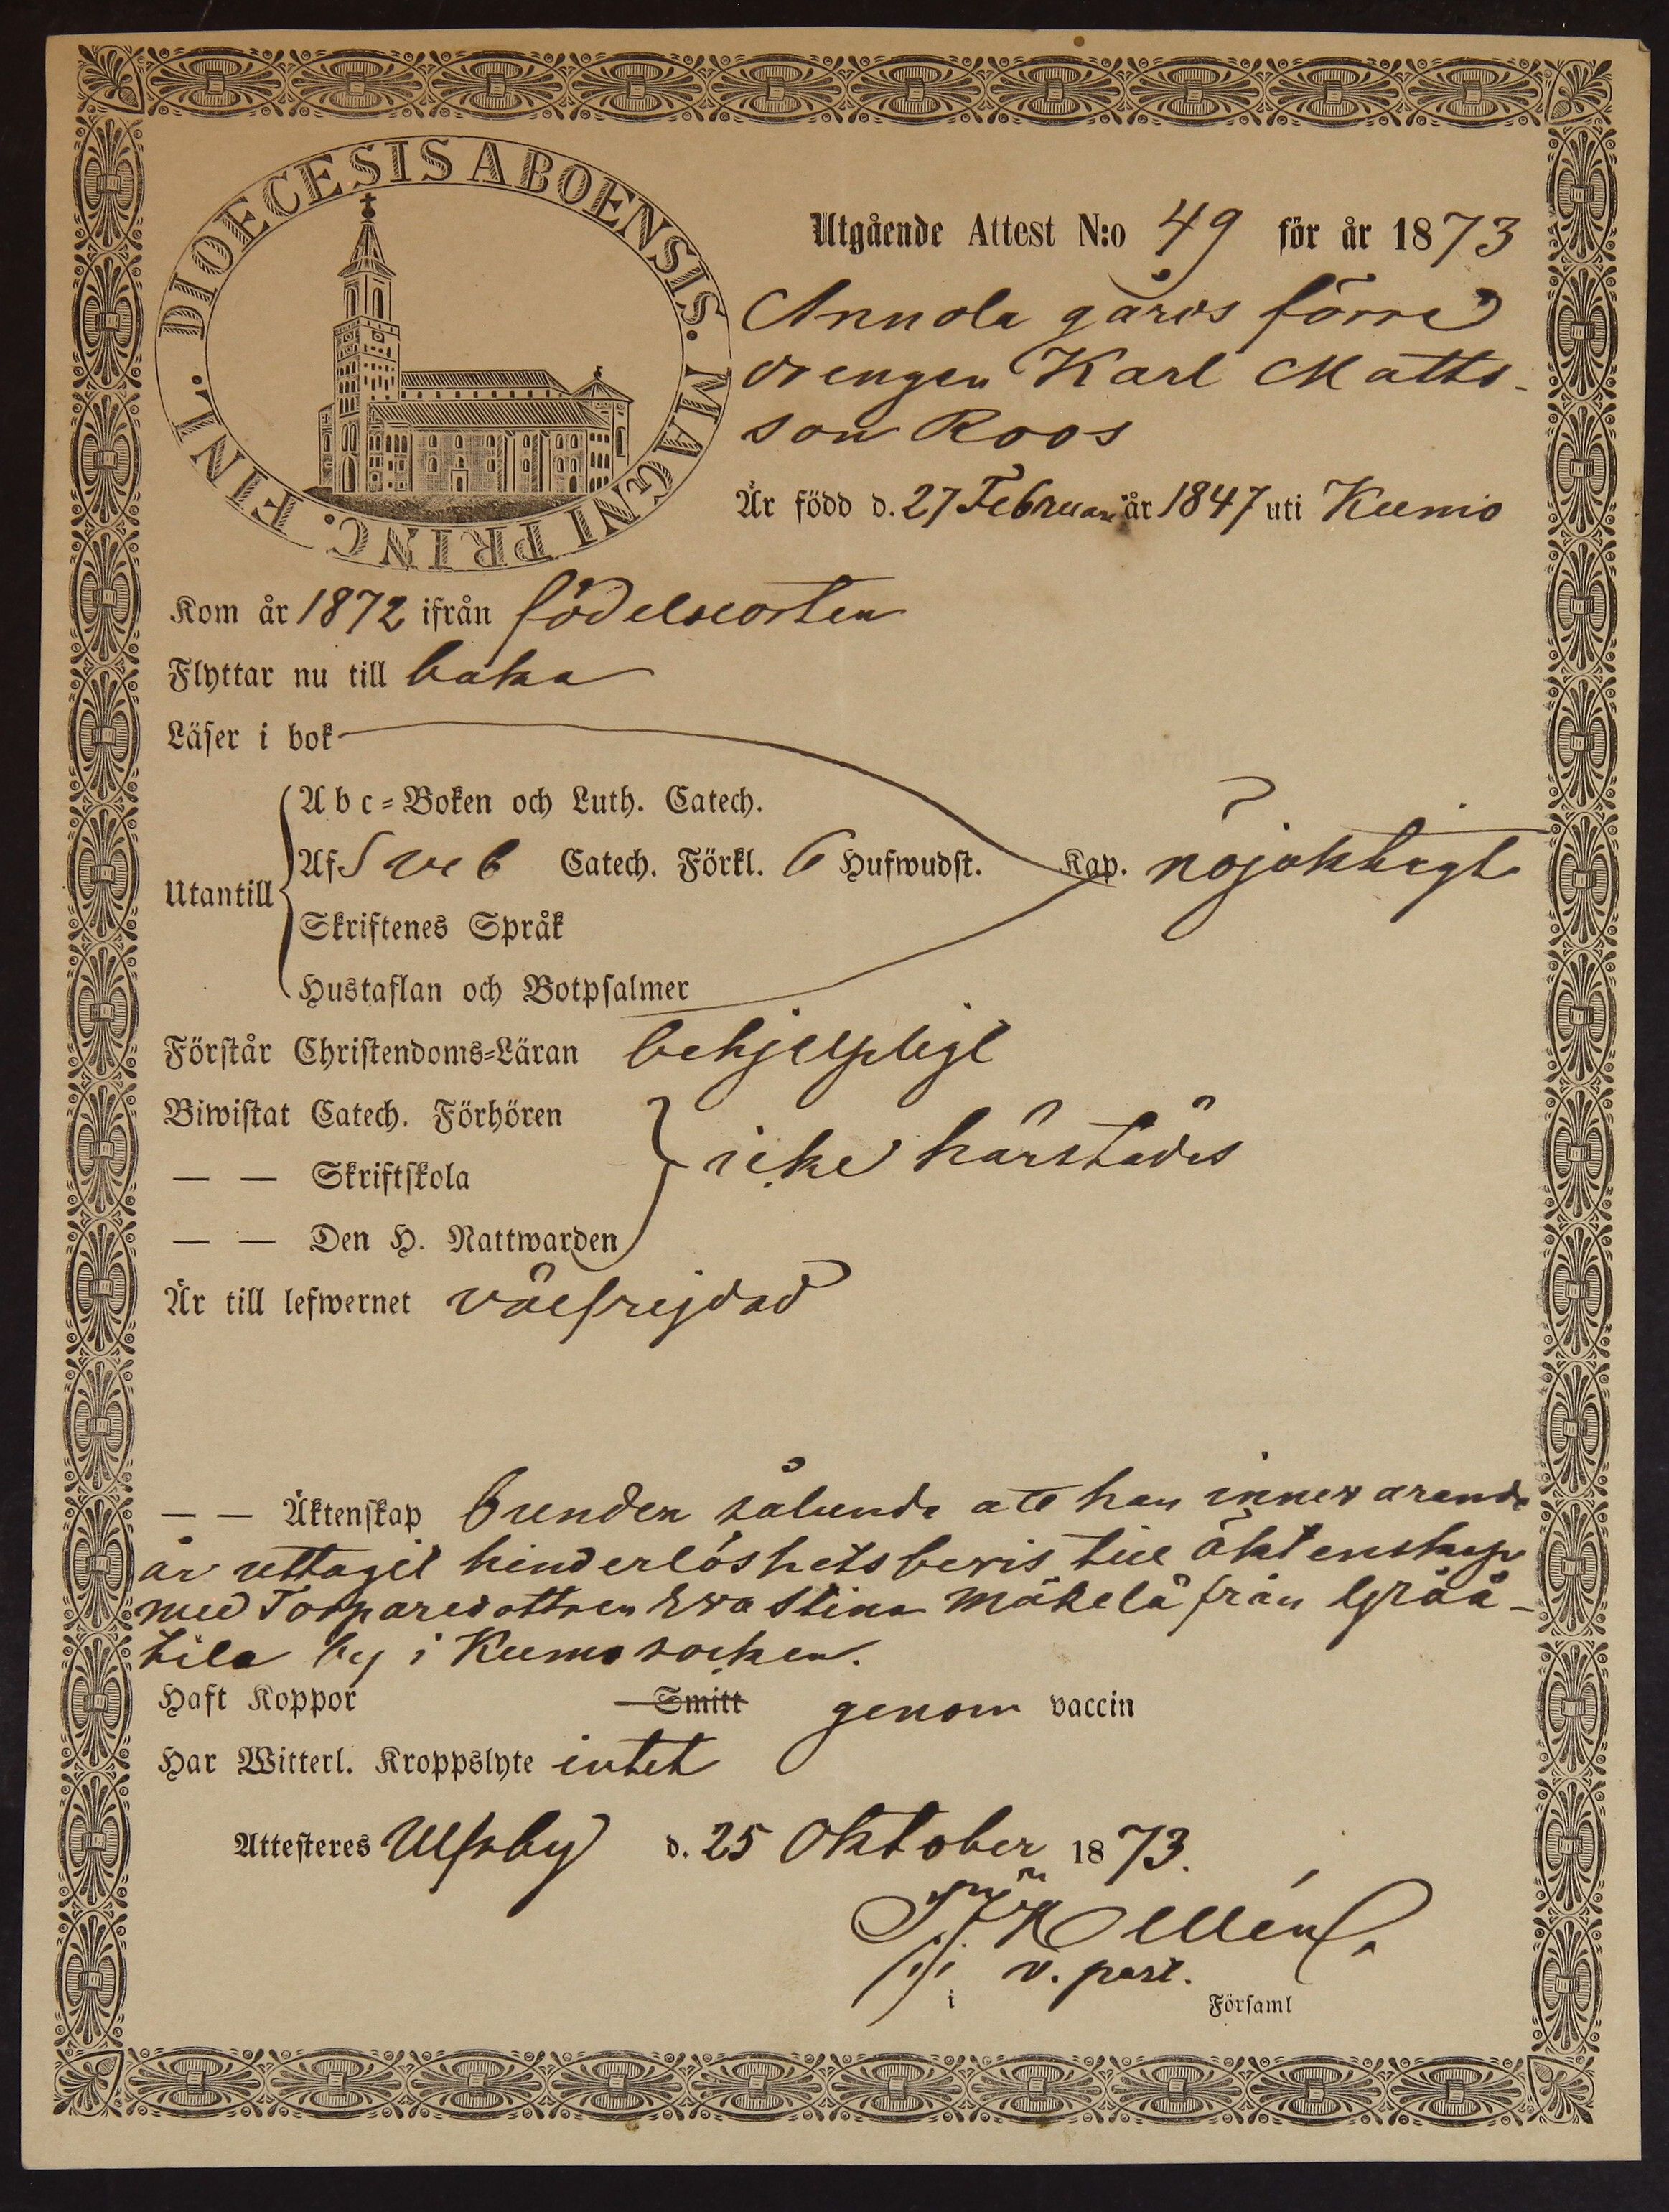 DIOECESIS ABOENSIS. MAGNI PRINC. FINL.
Utgående Attest N:o 49 för år 1873
Annola gårds förre
drengen Karl Matts-
son Roos
Är född d. 27 Februari år 1847 uti Kumo
Kom år 1872 ifrån födelseorten
Flyttar nu till baka
Läser i bok
Utantill
Abc-Boken och Luth. Catech.
Af Sveb Catech. Förkl. 6 Hufwudst. Kap. nöjaktigt
Skriftenes Språk
Hustaflan och Botpsalmer
Förstår Christendoms-Läran behjelpligt
Biwistat Catech. Förhören
— — Skriftskola icke härstädes
— — Den H. Nattwarden
Är till lefwernet välfrejdad
— — Äktenskap bunden sålunda att han innevarande
år uttagit hinderlöshetsbevis till äktenskap
med Torparedottren Eva Stina Mäkelä från
tila by i Kumo socken.
Haft Koppor Smitt genom vaccin
Har Witterl. Kroppslyte intet
Attesteres Ulfsby d. 25 Oktober 1873.
v. past.
i Församl